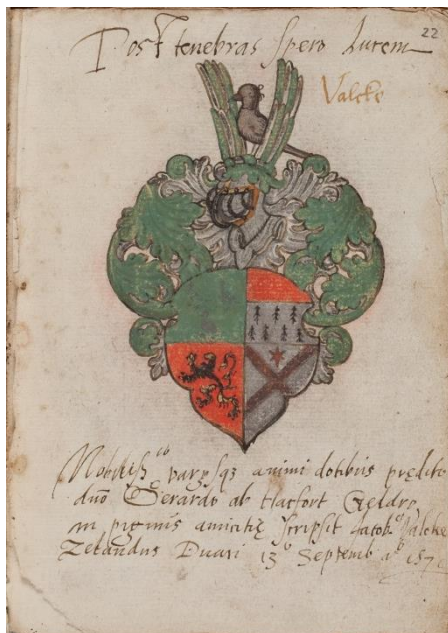 22
Post tenebras spero lucem
Valcke
Nobiliss.º varijsq3 animi dotibus predito
dnõ Gerardo ab Hacfort Geldro
in pignus amicitię scripsit Jacob.º Valcke
Zelandus Duaci 13º Septemb aº